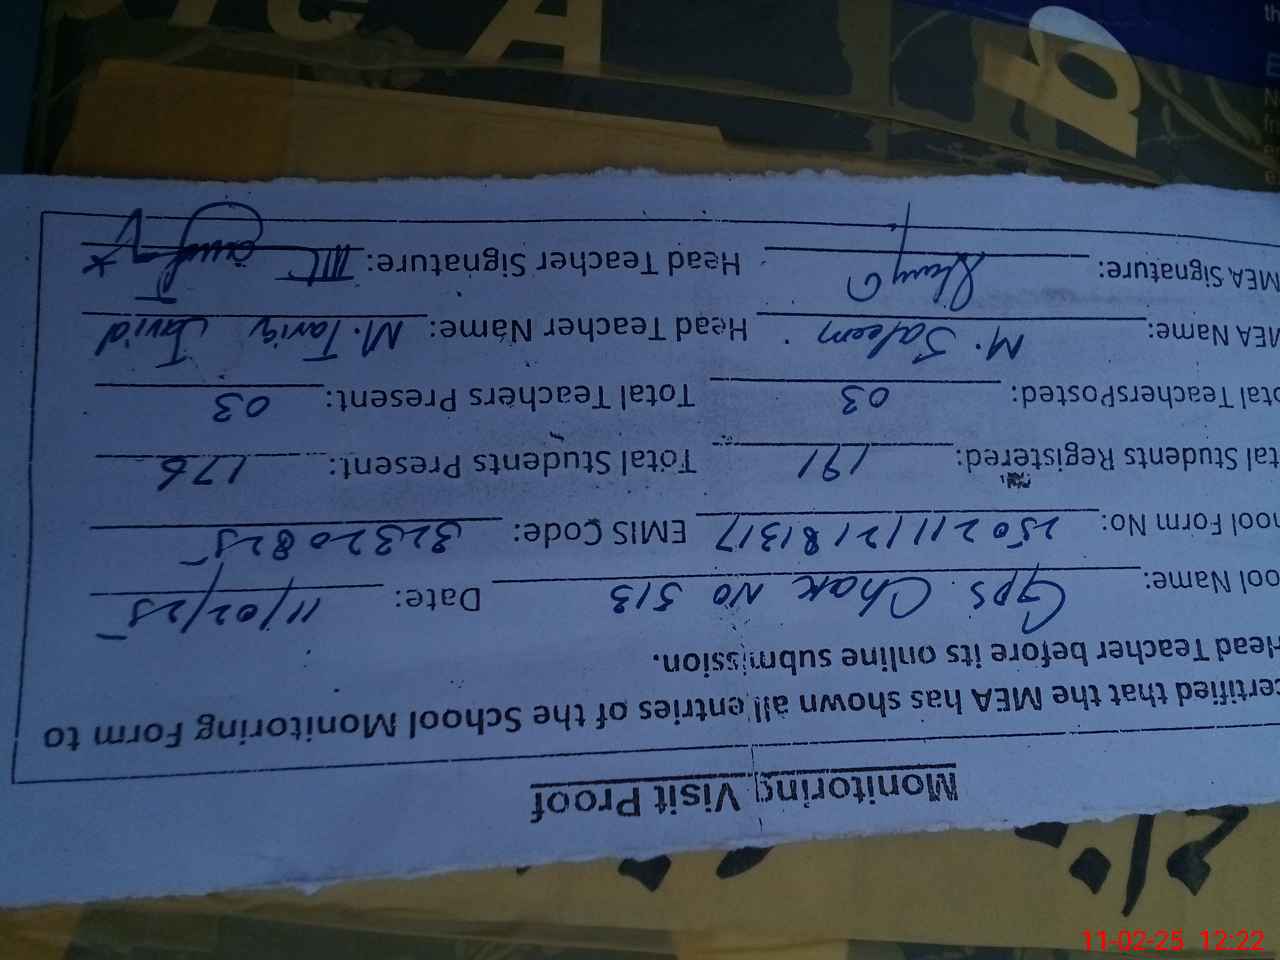 Monitoring Visit Proof
ertified that the MEA has shown all entries of the School Monitoring Form to
Head Teacher before its online submission.
ool Name: GPS Chak No 513 Date: 11/02/25
hool Form No: 250211112181317 EMIS Code: 32320825
tal Students Registered: 191 Total Students Present: 176
otal TeachersPosted: 03 Total Teachers Present: 03
MEA Name: M. Saleem Head Teacher Name: M. Tariq Javid
MEA Signature: Head Teacher Signature:
11-02-25 12:22